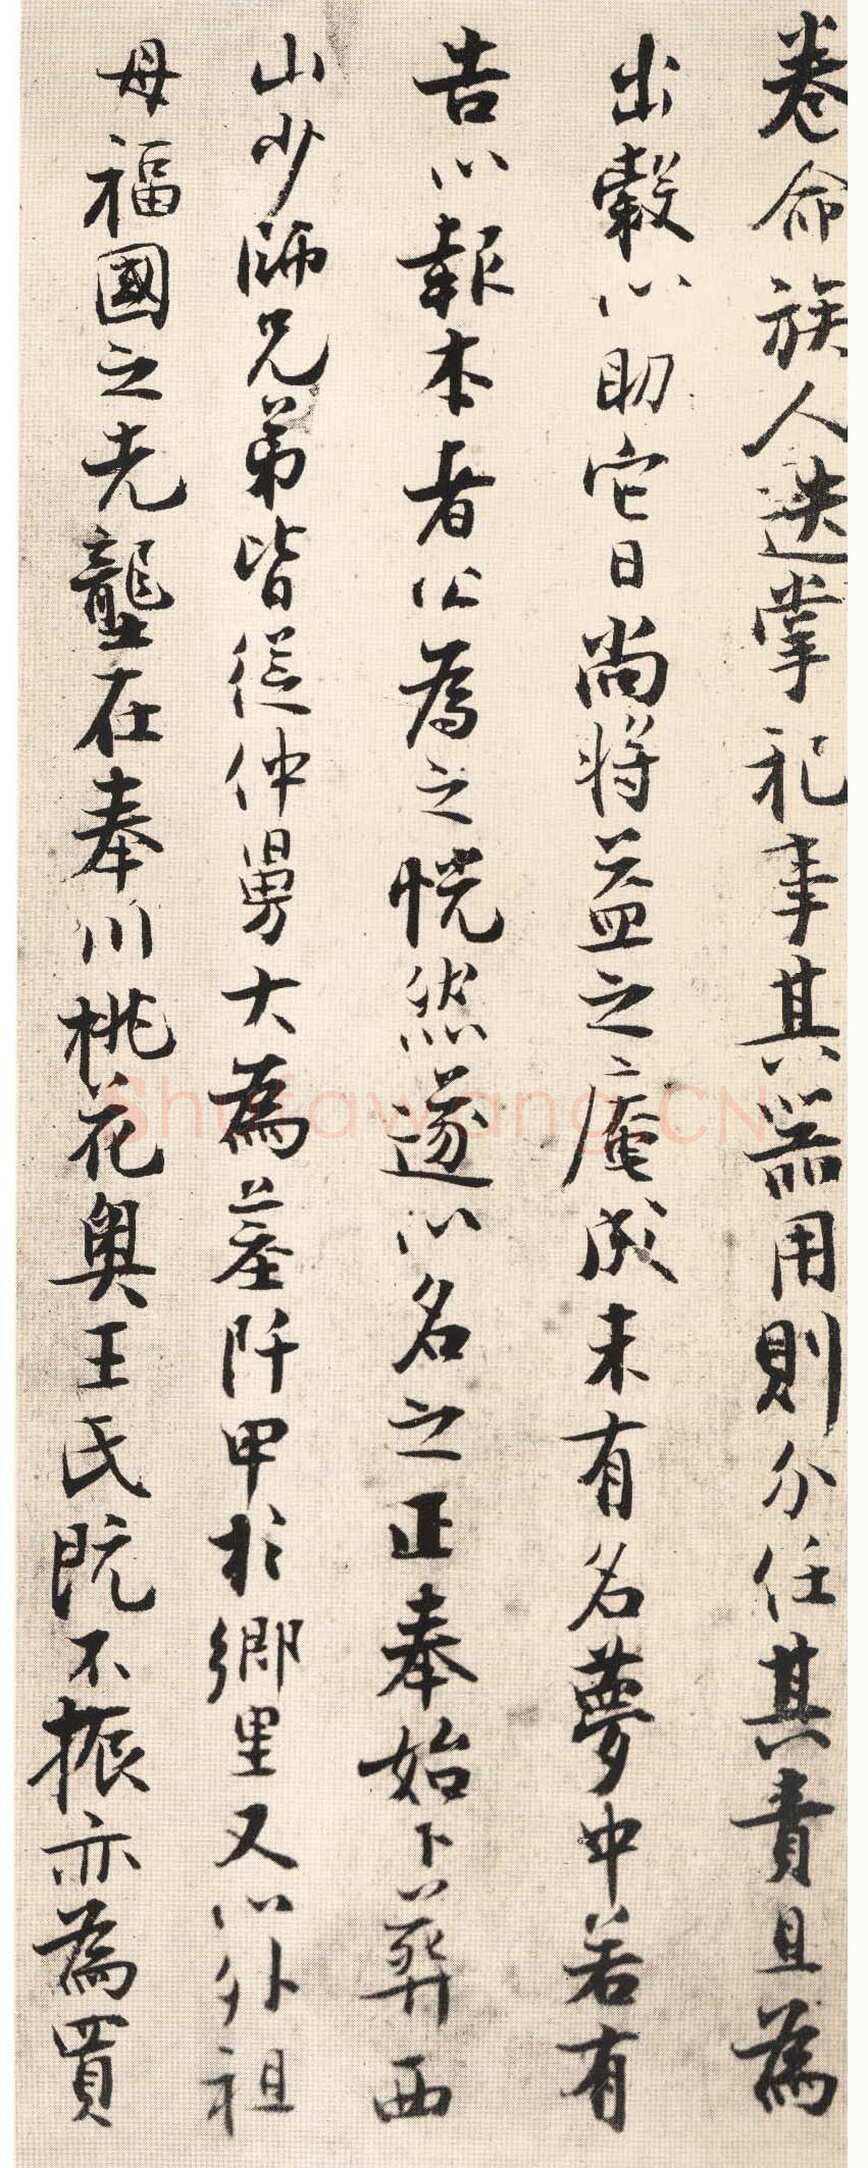 卷命族人迭掌祀事其器用則分任其責且為
出穀以助它日尚將益之庵成未有名夢中若有
告以報本者公為之恍然遂以名之正奉始卜葬西
山少師兄弟皆從仲舅大為墓阡甲於鄉里又以外祖
母福國之先壟在奉川桃花奧王氏既不振亦為買
Shufawang.CN